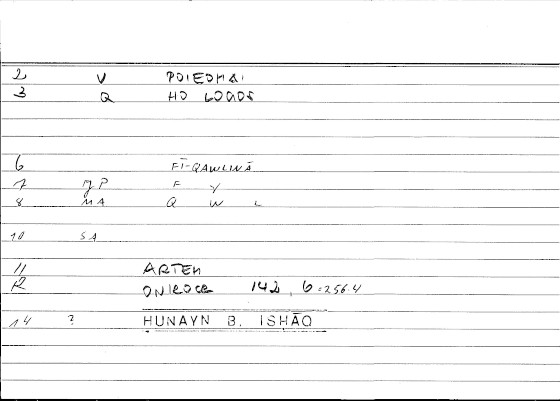 2 V POIEOMAI
3 Q HO LOGOS
6 FĪ-QAWLINĀ
7 JP F Y
8 MA Q W L
10 SA
11 ARTEM
12 ONIROCR 142, 6 = 256.4
14 ? HUNAYN B. ISHĀQ